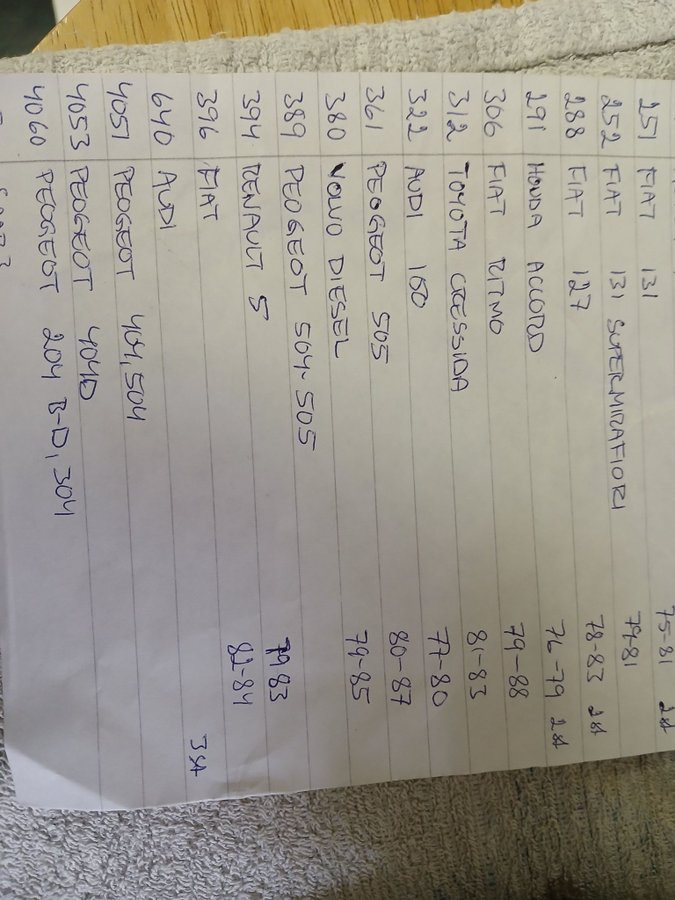 251 FIAT 131 75-81 2st
252 FIAT 131 SUPERMIRAFIORI 79-81
288 FIAT 127 78-83 2st
291 HONDA ACCORD 76-79 2st
306 FIAT RITMO 79-88
312 TOYOTA CRESSIDA 81-83
322 AUDI 100 77-80
361 PEOGEOT 505 80-87
380 VOLVO DIESEL 79-85
389 PEOGEOT 504-505
394 RENAULT 5 79-83
396 FIAT 82-84
640 AUDI 3st
4051 PEOGEOT 404,504
4053 PEOGEOT 404D
4060 PEOGEOT 204 B-D, 304